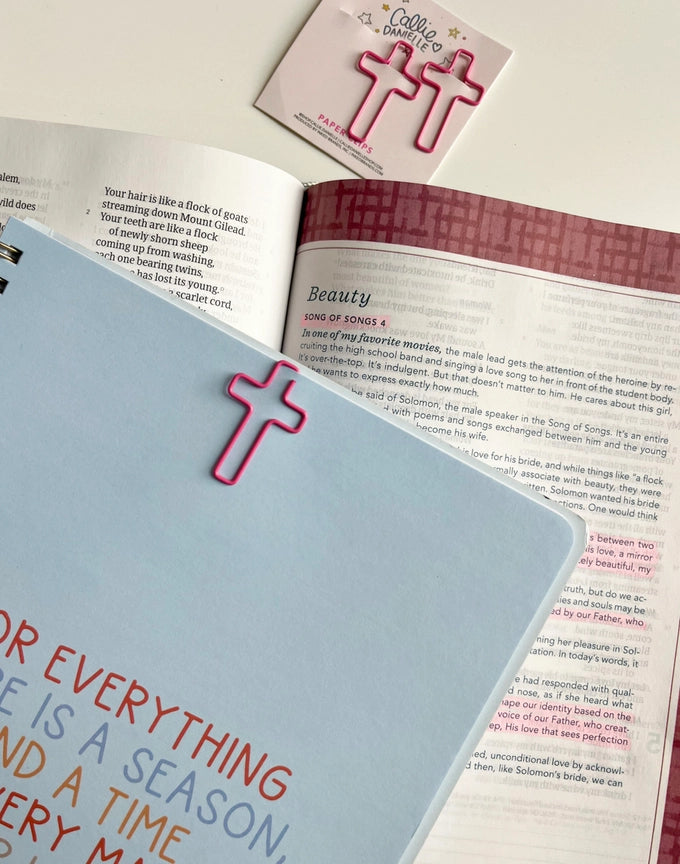 Callie
DANIELLE
PAPER CLIPS
alem,
vild does
Your hair is like a flock of goats
streaming down Mount Gilead.
2 Your teeth are like a flock
of newly shorn sheep
coming up from washing,
each one bearing twins,
has lost its young.
scarlet cord,
Beauty
SONG OF SONGS 4
In one of my favorite movies, the male lead gets the attention of the heroine by re-
cruiting the high school band and singing a love song to her in front of the student body.
It's over-the-top. It's indulgent. But that doesn't matter to him. He cares about this girl,
he wants to express exactly how much.
be said of Solomon, the male speaker in the Song of Songs. It's an entire
with poems and songs exchanged between him and the young
become his wife.
is love for his bride, and while things like "a flock
mally associate with beauty, they were
tten. Solomon wanted his bride
ctions. One would think
s between two
is love, a mirror
ely beautiful, my
truth, but do we ac-
ies and souls may be
ed by our Father, who
ning her pleasure in Sol-
ation. In today's words, it
e had responded with qual-
d nose, as if she heard what
ape our identity based on the
voice of our Father, who creat-
ep, His love that sees perfection
ed, unconditional love by acknowl-
d then, like Solomon's bride, we can
OR EVERYTHING
RE IS A SEASON,
ND A TIME
VERY MA